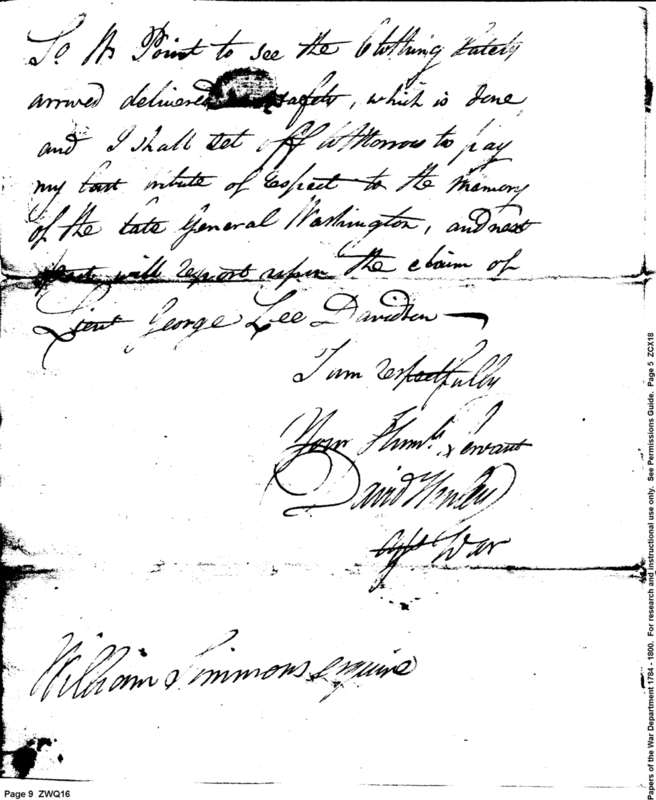 So W Point to see the Clothing lately
arrived delivered safety, which is done,
and I shall set off tomorrow to pay
my last tribute of respect to the memory
of the late General Washington, and next
post will report upon the claim of
Lieut George Lee Davidson —
I am respectfully
Your Humle Servant
David Henley
Agt War
William Simmons Esquire
Page 9 ZWQ16
Papers of the War Department 1784 - 1800. For research and instructional use only. See Permissions Guide. Page 5 ZCX18